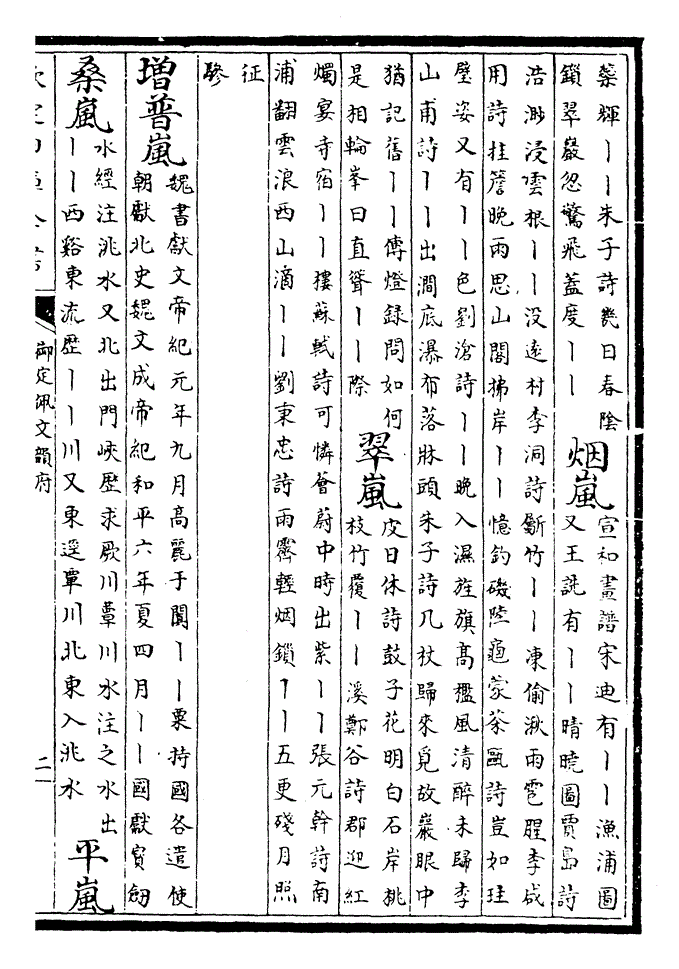 藥輝丨丨朱子詩幾日春陰
鎖翠巖忽驚飛蓋度丨丨
烟嵐
宣和畫譜宋迪有丨丨漁浦圖
又王詵有丨丨晴曉圖賈島詩
浩渺浸雲根丨丨没遠村李洞詩斸竹丨丨凍偷湫雨雹腥李咸
用詩挂簷晚雨思山閣拂岸丨丨憶釣磯陸龜蒙茶甌詩豈如珪
璧姿又有丨丨色劉滄詩丨丨晚入濕旌旗高檻風清醉未歸李
山甫詩丨丨出澗底瀑布落牀頭朱子詩几杖歸來覓故巖眼中
猶記舊丨丨傳燈録問如何
是相輪峯曰直聳丨丨際
翠嵐
皮日休詩鼓子花明白石岸桃
枝竹覆丨丨溪鄭谷詩郡迎紅
燭宴寺宿丨丨樓蘇軾詩可憐薈蔚中時出紫丨丨張元幹詩南
浦翻雲浪西山滴丨丨劉秉忠詩雨霽輕烟鎖丨丨五更殘月照
征
驂
增普嵐
魏書獻文帝紀元年九月高麗于闐丨丨粟持國各遣使
朝獻北史魏文成帝紀和平六年夏四月丨丨國獻寳劒
桑嵐
水經注洮水又北出門峽歷求厥川蕈川水注之水出
丨丨西谿東流歷丨丨川又東逕蕈川北東入洮水
平嵐
御定佩文韻府
二